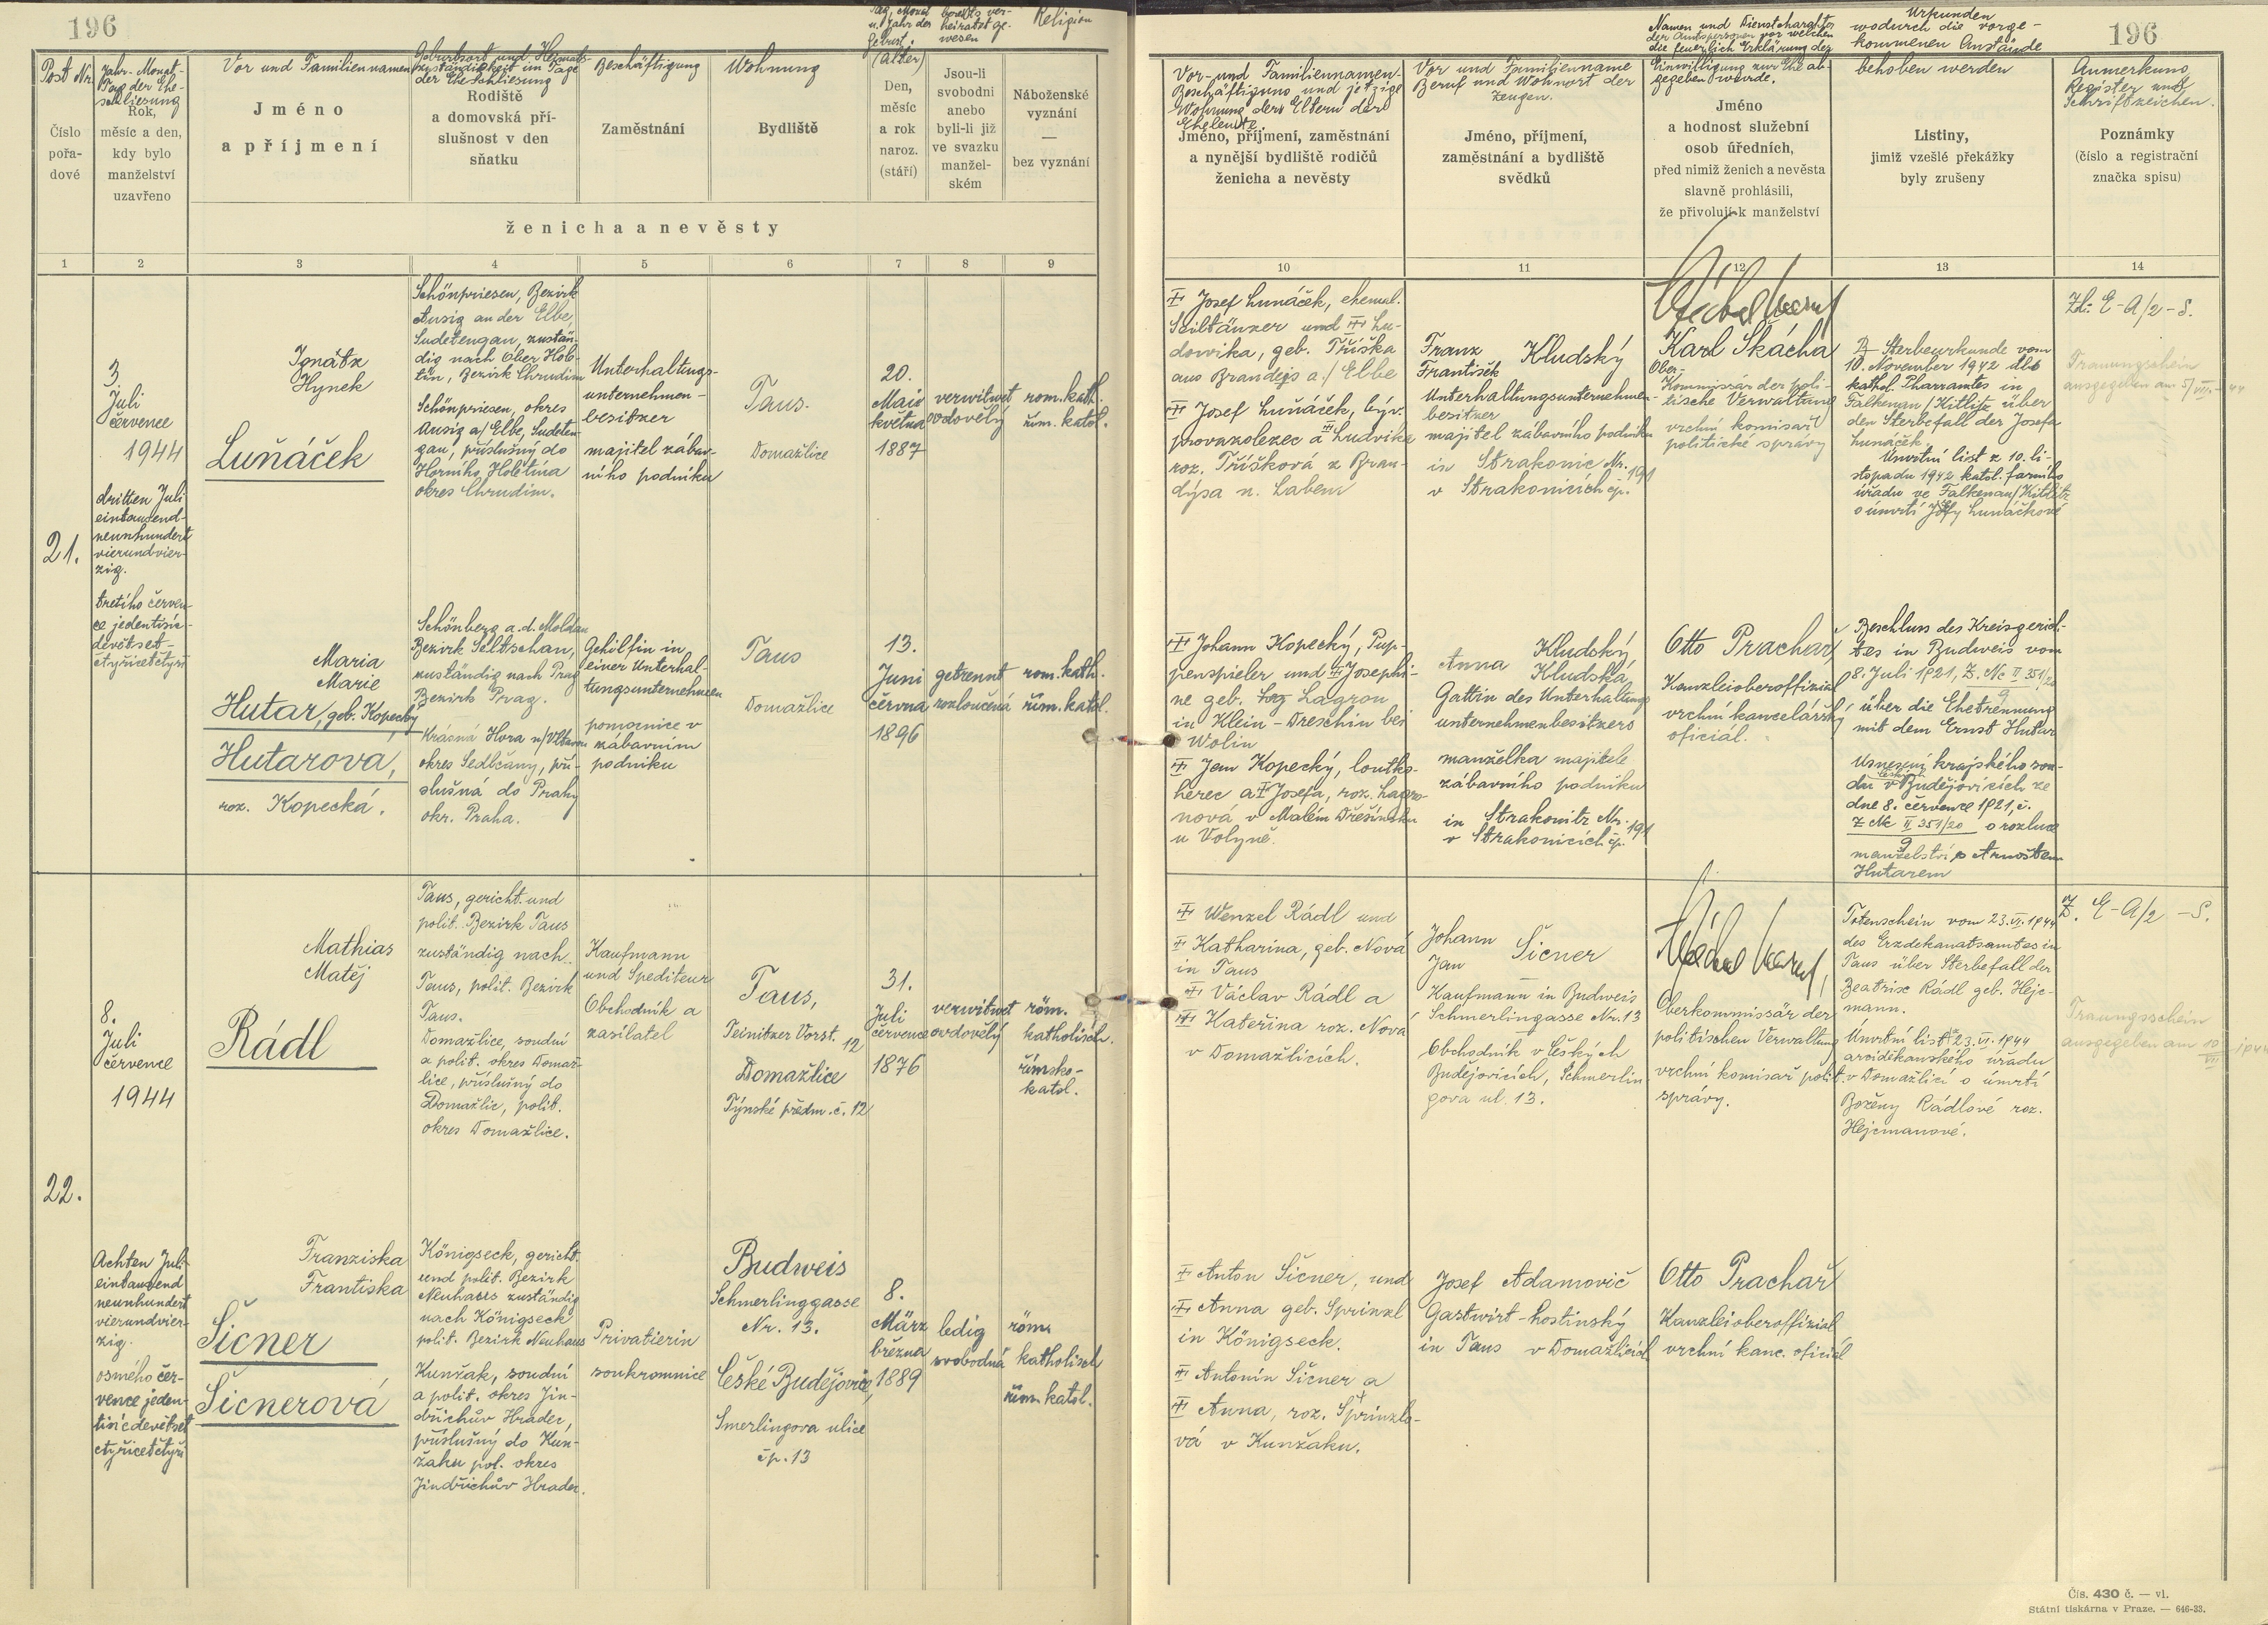 196
Post Nr.
Číslo
pořa-
dové
Jahr-Monat-
Tag der Ehe-
schliesung
Rok,
měsíc a den,
kdy bylo
manželství
uzavřeno
Vor und Familiennamen
Jméno
a příjmení
Geburtsort und Heimats-
zuständigkeit im Tage
der Eheschliesung
Rodiště
a domovská pří-
slušnost v den
sňatku
Beschäftigung
Zaměstnání
Wohnung
Bydliště
Tag, Monat
u. Jahr der
Geburt.
(Alter)
Den,
měsíc
a rok
naroz.
(stáří)
bereits ver-
heiratet ge-
wesen
Jsou-li
svobodni
anebo
byli-li již
ve svazku
manžel-
ském
Religion
Náboženské
vyznání
—
bez vyznání
ženicha a nevěsty
1 2 3 4 5 6 7 8 9
21.
3.
Juli
července
1944
dritten Juli
eintausend-
neunhundert
vierundvier-
zig.
třetího červen-
ce jedentisíc-
devětset-
čtyřicetčtyři
Ignátz
Hynek
Luňáček
Schönpriesen, Bezirk
Ausig an der Elbe,
Sudetengau, zustän-
dig nach Ober Holo-
tín, Bezirk Chrudim
Schönpriesen, okres
Ausig a/Elbe, Sudeten-
gau, příslušný do
Horního Holetína
okres Chrudim.
Unterhaltungs-
unternehmen-
besitzer
majitel zábav-
ního podniku
Taus.
Domažlice
20.
Mai
května
1887
verwitwet
ovdovělý
rom. kath.
řím. katol.
Maria
Marie
Hutar, geb. Kopecky
Hutarova,
roz. Kopecká.
Schönberg a. d. Moldau
Bezirk Seltschan,
zuständig nach Prag
Bezirk Prag.
Krásná Hora n/Vltavou
okres Sedlčany, pří-
slušná do Prahy
okr. Praha.
Gehilfin in
einer Unterhal-
tungsunternehmen
pomocnice v
zábavním
podniku
Taus
Domažlice
13.
Juni
června
1896
getrennt
rozloučená
rom. kath.
řím. katol.
22.
8.
Juli
července
1944
Achten Juli
eintausend
neunhundert
vierundvier-
zig.
osmého čer-
vence jeden-
tisícdevětset
čtyřicetčtyři
Mathias
Matěj
Rádl
Taus, gericht. und
polit. Bezirk Taus
zuständig nach
Taus, polit. Bezirk
Taus.
Domažlice, soudní
a polit. okres Domaž-
lice, příslušný do
Domažlic, polit.
okres Domažlice.
Kaufmann
und Spediteur
Obchodník a
zasílatel
Taus,
Teinitzer Vorst. 12
Domažlice
Týnské předm. č. 12
31.
Juli
července
1876
verwitwet
ovdovělý
röm.
katholisch.
římsko-
katol.
Franziska
Frantiska
Šicner
Šicnerová
Königseck, gericht.
und polit. Bezirk
Neuhaus zuständig
nach Königseck
polit. Bezirk Neuhaus
Kunžak, soudní
a polit. okres Jin-
dřichův Hradec,
příslušný do Kun-
žaku pol. okres
Jindřichův Hradec.
Privatierin
soukromnice
Budweis
Schmerlinggasse
Nr. 13.
České Budějovice,
Smerlingova ulice
čp. 13
8.
März
března
1889
ledig
svobodná
röm.
katholisch
řím. katol.
196
Vor- und Familiennamen-
Beschäftigung und jetzige
Wohnung der Eltern der
Eheleute.
Jméno, příjmení, zaměstnání
a nynější bydliště rodičů
ženicha a nevěsty
Vor und Familienname
Beruf und Wohnort der
Zeugen.
Jméno, příjmení,
zaměstnání a bydliště
svědků
Namen und Dienstcharakter
der Amtspersonen vor welchen
die feuerlich Erklärung der
Einwilligung zur Ehe ab-
gegeben wurde.
Jméno
a hodnost služební
osob úředních,
před nimiž ženich a nevěsta
slavně prohlásili,
že přivolují k manželství
Urkunden
wodurch die vorge-
kommenen Anstände
behoben werden
Listiny,
jimiž vzešlé překážky
byly zrušeny
Anmerkung
Register und
Schriftzeichen.
Poznámky
(číslo a registrační
značka spisu)
10 11 12 13 14
Josef Lunáček, ehemal.
Seiltänzer und Lu-
dowika, geb. Tříška
aus Brandejs a./Elbe
Josef Luňáček, býv.
provazolezec a Ludvika
roz. Tříšková z Bran-
dýsa n. Labem
Franz
František Kludský
Unterhaltungsunternehmen-
besitzer
majitel zábavního podniku
in Strakonic Nr. 191
v Strakonicích čp.
Karl Škácha
Ober-
Kommissär der poli-
tische Verwaltung
vrchní komisař
politické správy
Sterbeurkunde vom
10. November 1942 des
kathol. Pharramtes in
Falkenau/Kittlitz über
den Sterbefall der Josefa
Lunáček.
Úmrtní list z 10. li-
stopadu 1942 katol. farního
úřadu ve Falkenau/Kittlitz
o úmrtí Josefy Lunáčkové
Zl: E-A/2-S.
Trauungschein
ausgegeben am 5/VII.-44
Johann Kopecký, Pup-
penspieler und Josephi-
ne geb. Lagron
in Klein-Dreschin bei
Wolin
Jan Kopecký, loutko-
herec a Josefa, roz. Lagro-
nová v Malém Dřešínku
u Volyně.
Anna Kludský
Kludská
Gattin des Unterhaltungs
unternehmenbesitzers
manželka majitele
zábavního podniku
in Strakonitz Nr. 191
v Strakonicích čp.
Otto Prachař
Kanzleioberoffizial
vrchní kancelářský
oficiál.
Beschluss des Kreisgerich-
tes in Budweis vom
8. Juli 1921, Z. Nc II 351/20
9
über die Ehetrennung
mit dem Ernst Hutar
Usnesení krajského sou-
du v Českých Budějovicích ze
dne 8. července 1921, č.
Z Nc II 351/20 o rozluce
9
manželství s Arnoštem
Hutarem
Wenzel Rádl und
Katharina, geb. Nová
in Taus
Václav Rádl a
Kateřina roz. Nová
v Domažlicích.
Johann
Jan Šicner
Kaufmann in Budweis
Schmerlingasse Nr. 13
Obchodník v Českých
Budějovicích, Schmerlin
gova ul. 13.
Oberkommissär der
politischen Verwaltung
vrchní komisař polit.
správy.
Totenschein vom 23. VI. 1944
des Erzdekanatsamtes in
Taus über Sterbefall der
Beatrix Rádl geb. Hejc-
mann.
Úmrtní list z 23. VI. 1944
arciděkanského úřadu
v Domažlicí o úmrtí
Boženy Rádlové roz.
Hejcmanové.
Z. E-A/2-S.
Trauungsschein
ausgegeben am 10/VII 1944
Anton Šicner, und
Anna geb. Sprinzl
in Königseck.
Antonín Šicner a
Anna, roz. Sprinzlo-
vá v Kunžaku.
Josef Adamovič
Gastwirt-hostinský
in Taus v Domažlicích
Otto Prachař
Kanzleioberoffizial
vrchní kanc. oficiál
Čís. 430 č. — vl.
Státní tiskárna v Praze. — 646-33.